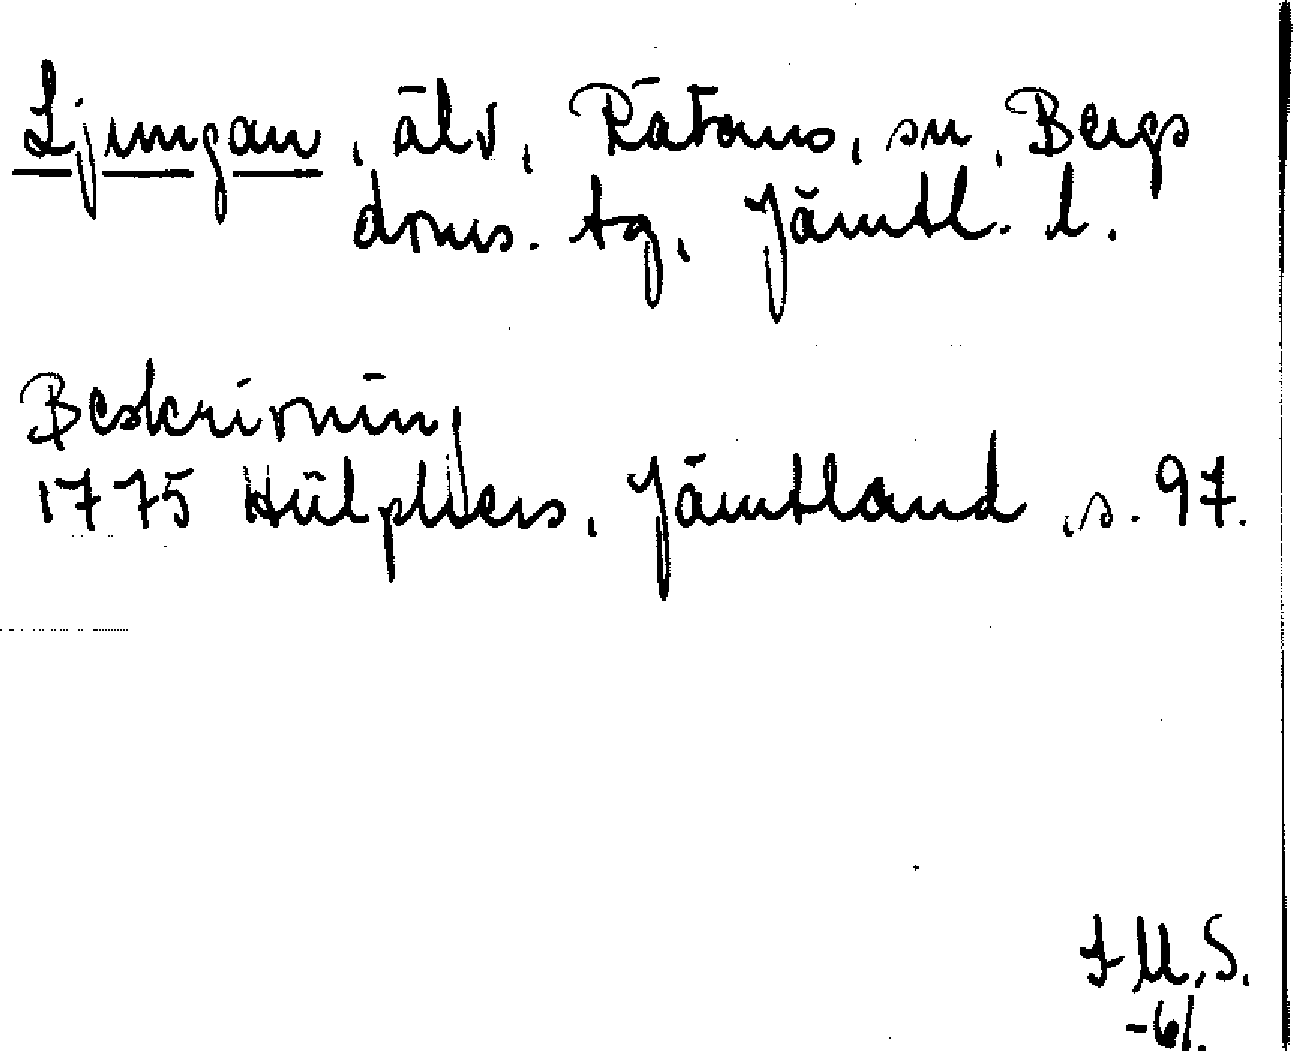 Ljungan, älv, Rätans, sn, Bergs
doms. tg, Jämtl. l.
Beskrivning
1775 Hülphers, Jämtland, s. 97.
I M.S.
-61.